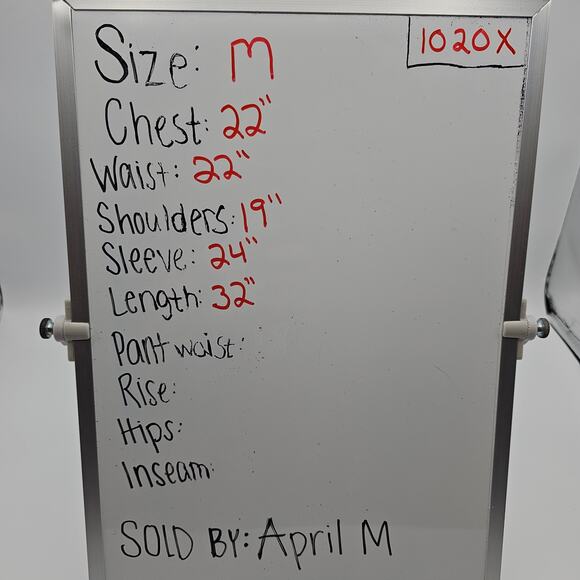 Size: M
1020X
Chest: 22"
Waist: 22"
Shoulders: 19"
Sleeve: 24"
Length: 32"
Pant waist:
Rise:
Hips:
Inseam:
SOLD BY: April M